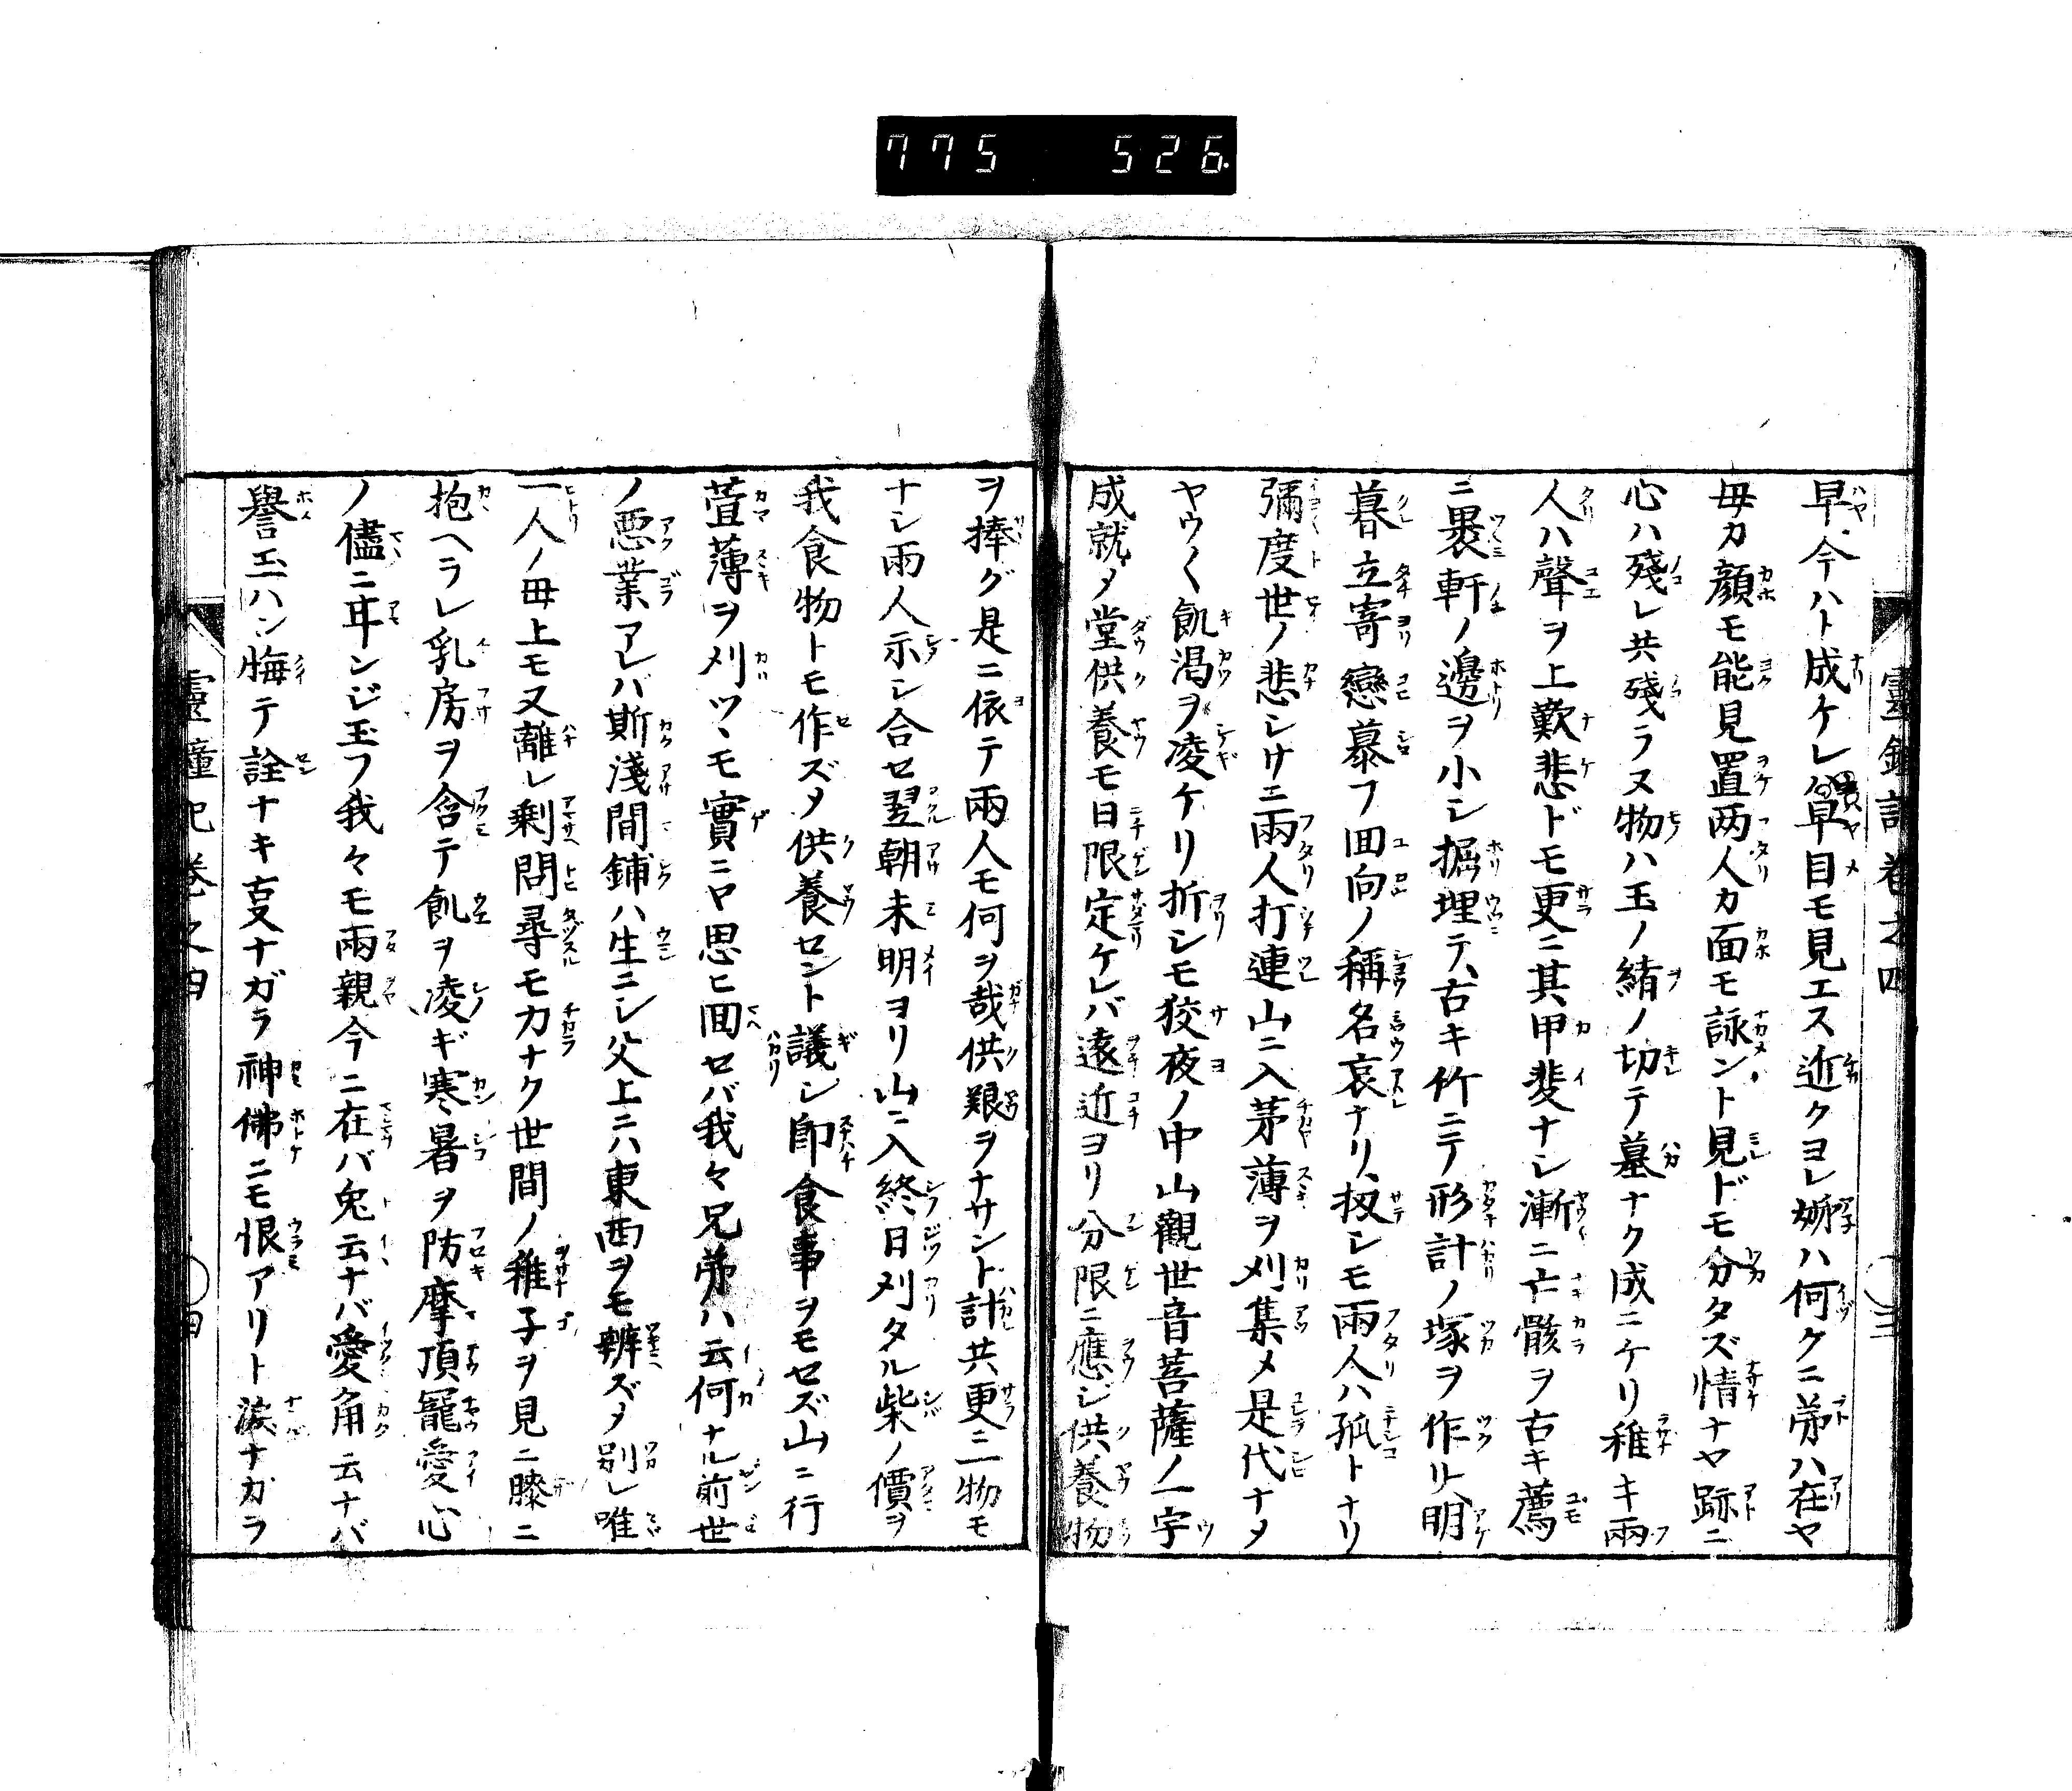 775 526
早今ハト成ケレ早目モ見エス近クヨレ姉ハ何クニ弟ハ在ヤ
毎カ顔モ能見置两人カ面モ詠ント見ドモ分タズ情ナヤ跡ニ
心ハ殘レ共殘ラヌ物ハ玉ノ緒ノ切テ墓ナク成ニケリ稚キ兩
人ハ聲ヲ上歎悲ドモ更ニ其甲斐ナシ漸ニ亡骸ヲ古キ薦
ニ裹軒ノ邊ヲ小シ掘埋テ古キ竹ニテ形計ノ塚ヲ作リ明
暮立寄戀慕フ回向ノ稱名哀ナリ扨シモ兩人ハ孤トナリ
彌度世ノ悲シサニ兩人打連山ニ入茅薄ヲ刈集メ是代ナメ
ヤウ〱飢渇ヲ凌ケリ折シモ狡夜ノ中山觀世音菩薩ノ一宇
成就メ堂供養モ日限定ケレバ遠近ヨリ分限ニ應ジ供養物
ヲ捧グ是ニ依テ兩人モ何ヲ哉供艱ヲナサント計共更ニ物モ
ナシ兩人示シ合セ翌朝未明ヨリ山ニ入終日刈タル柴ノ價ヲ
我食物トモ作ズメ供養セント議シ即食事ヲモセズ山ニ行
萱薄ヲ刈ツヽモ實ニヤ思ヒ回セバ我々兄弟ハ云何ナル前世
ノ悪業アレバ斯淺間鋪ハ生ニシ父上ニハ東西ヲモ辨ズメ別レ唯
一人ノ毎上モ又離レ剰問尋モ力ナク世間ノ稚子ヲ見ニ膝ニ
抱ヘラレ乳房ヲ含テ飢ヲ凌ギ寒暑ヲ防摩頂寵愛心
ノ儘ニ耳ンジ玉フ我々モ兩親今ニ在バ兔云ナバ愛角云ナバ
譽玉ハン悔テ詮ナキ叓ナガラ神佛ニモ恨アリト涙ナガラ